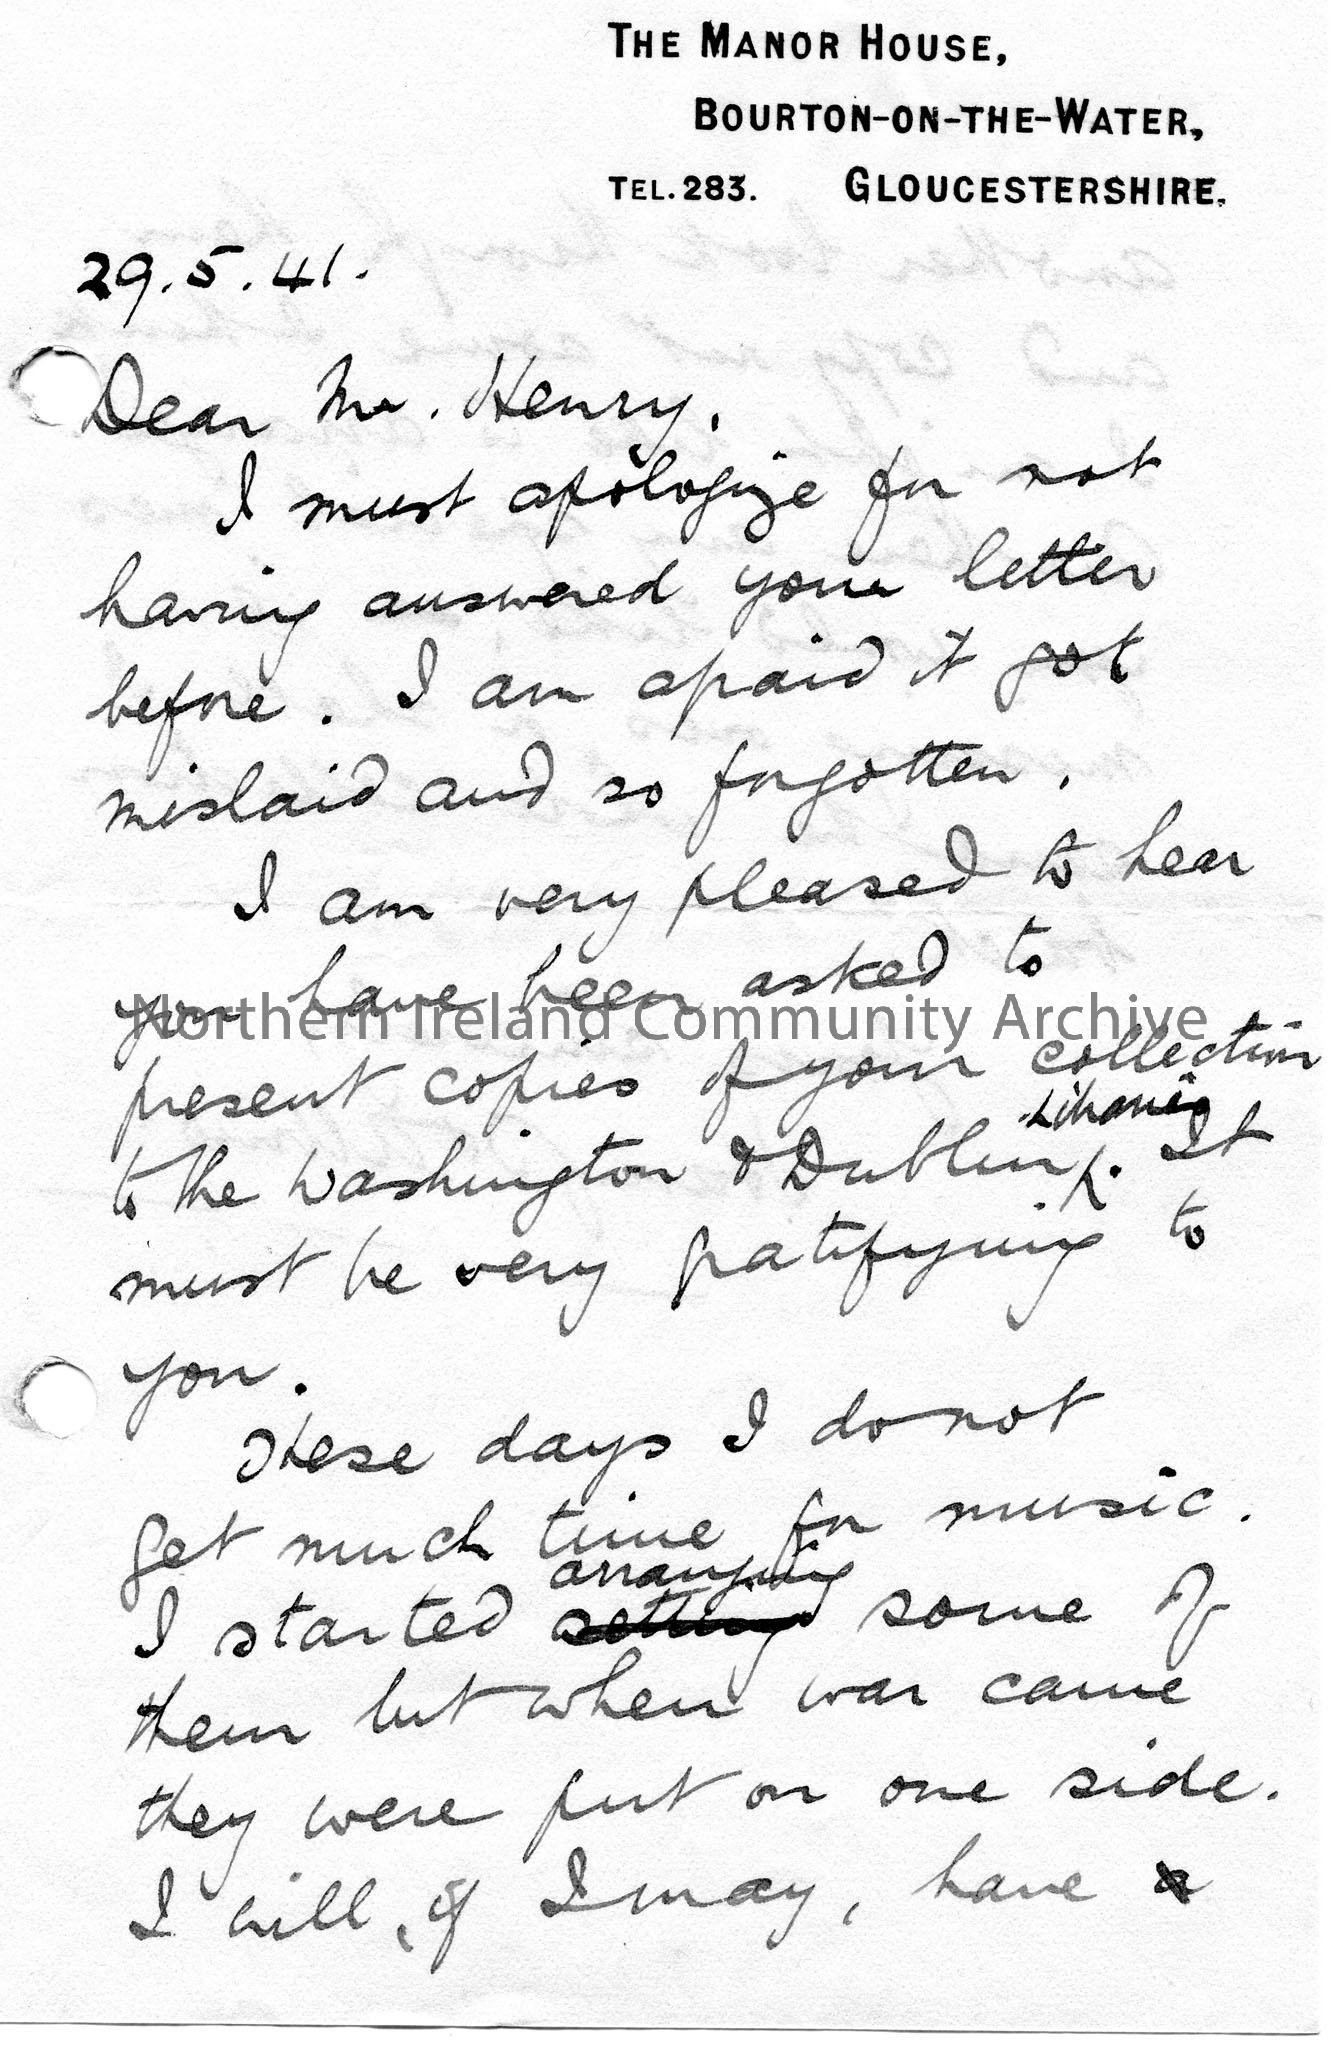 THE MANOR HOUSE,
BOURTON-ON-THE-WATER,
TEL. 283. GLOUCESTERSHIRE.
29.5.41.
Dear Mr. Henry,
I must apologize for not
having answered your letter
before. I am afraid it got
mislaid and so forgotten.
I am very pleased to hear
you have been asked to
Northern Ireland Community Archive
present copies of your collection
libraries
to the Washington & Dublin. It
must be very gratifying to
you.
These days I do not
get much time for music.
arranging
I started setting some of
them but when war came
they were put on one side.
I will, if I may, have a